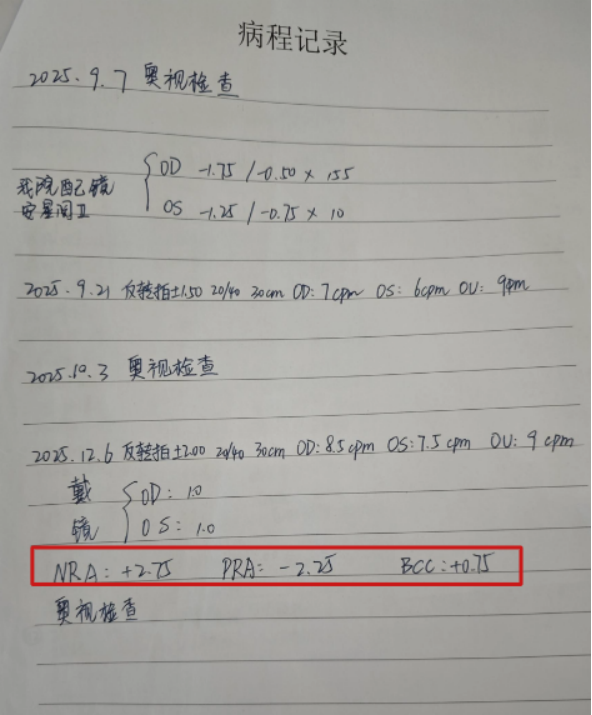 病程记录
2025.9.7 奥视检查
我院配镜 OD -1.75 / -0.50 × 155
安星闰II OS -1.25 / -0.75 × 10
2025.9.21 反转拍±1.50 20/40 30cm OD: 7cpm OS: 6cpm OU: 9cpm
2025.10.3 奥视检查
2025.12.6 反转拍±2.00 20/40 30cm OD: 8.5cpm OS: 7.5cpm OU: 9cpm
戴 OD: 1.0
镜 OS: 1.0
NRA: +2.75 PRA: -2.25 BCC: +0.75
奥视检查